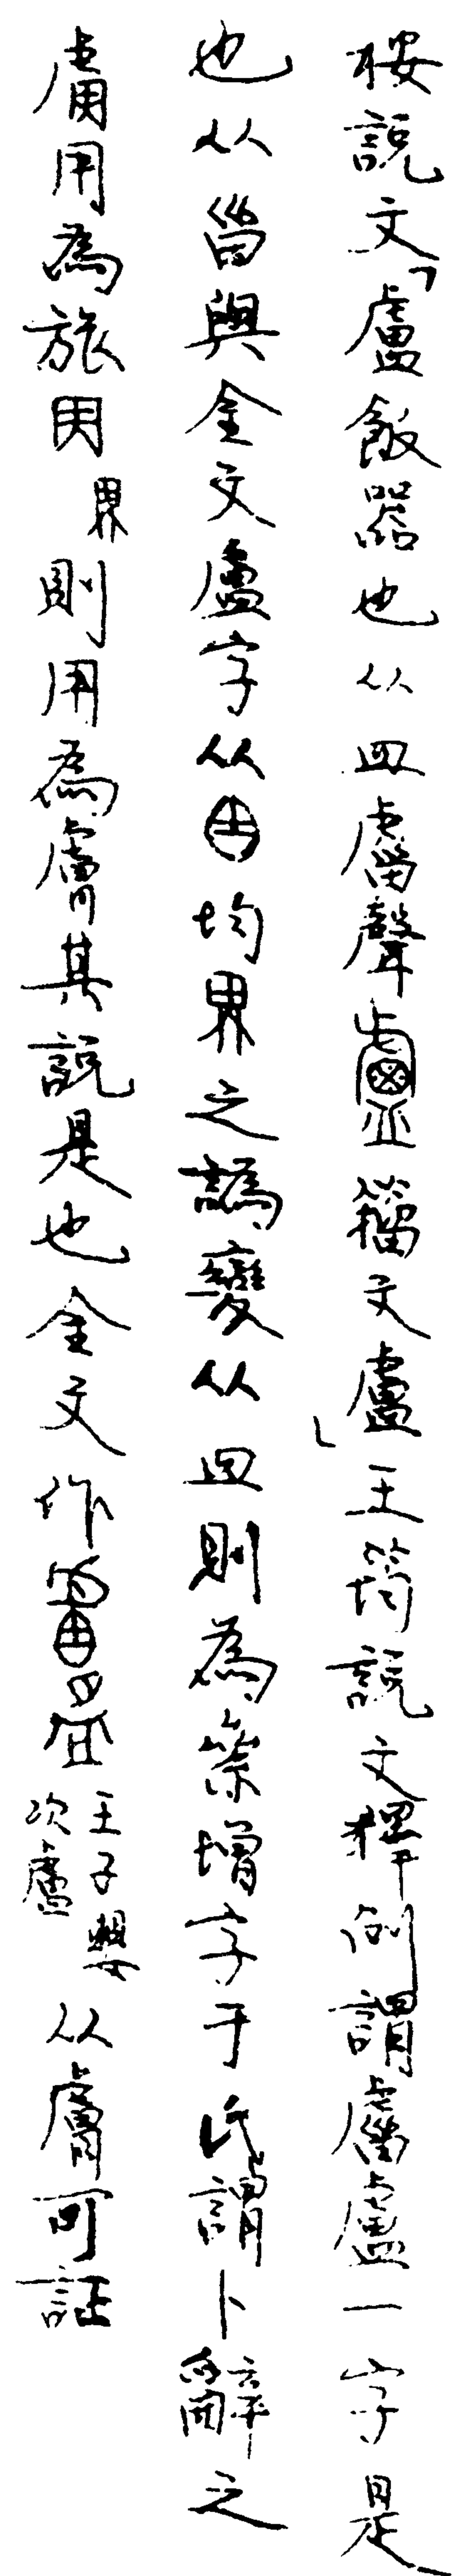 按說文「盧飯器也从皿𧆨聲籀文盧」王筠說文釋例謂𧆨盧一字是
也从甾與金文盧字从均界之譌變从皿則為絫增字于氏謂卜辭之
膚用為旅用則用為膚其說是也金文作王子嬰次盧从膚可証